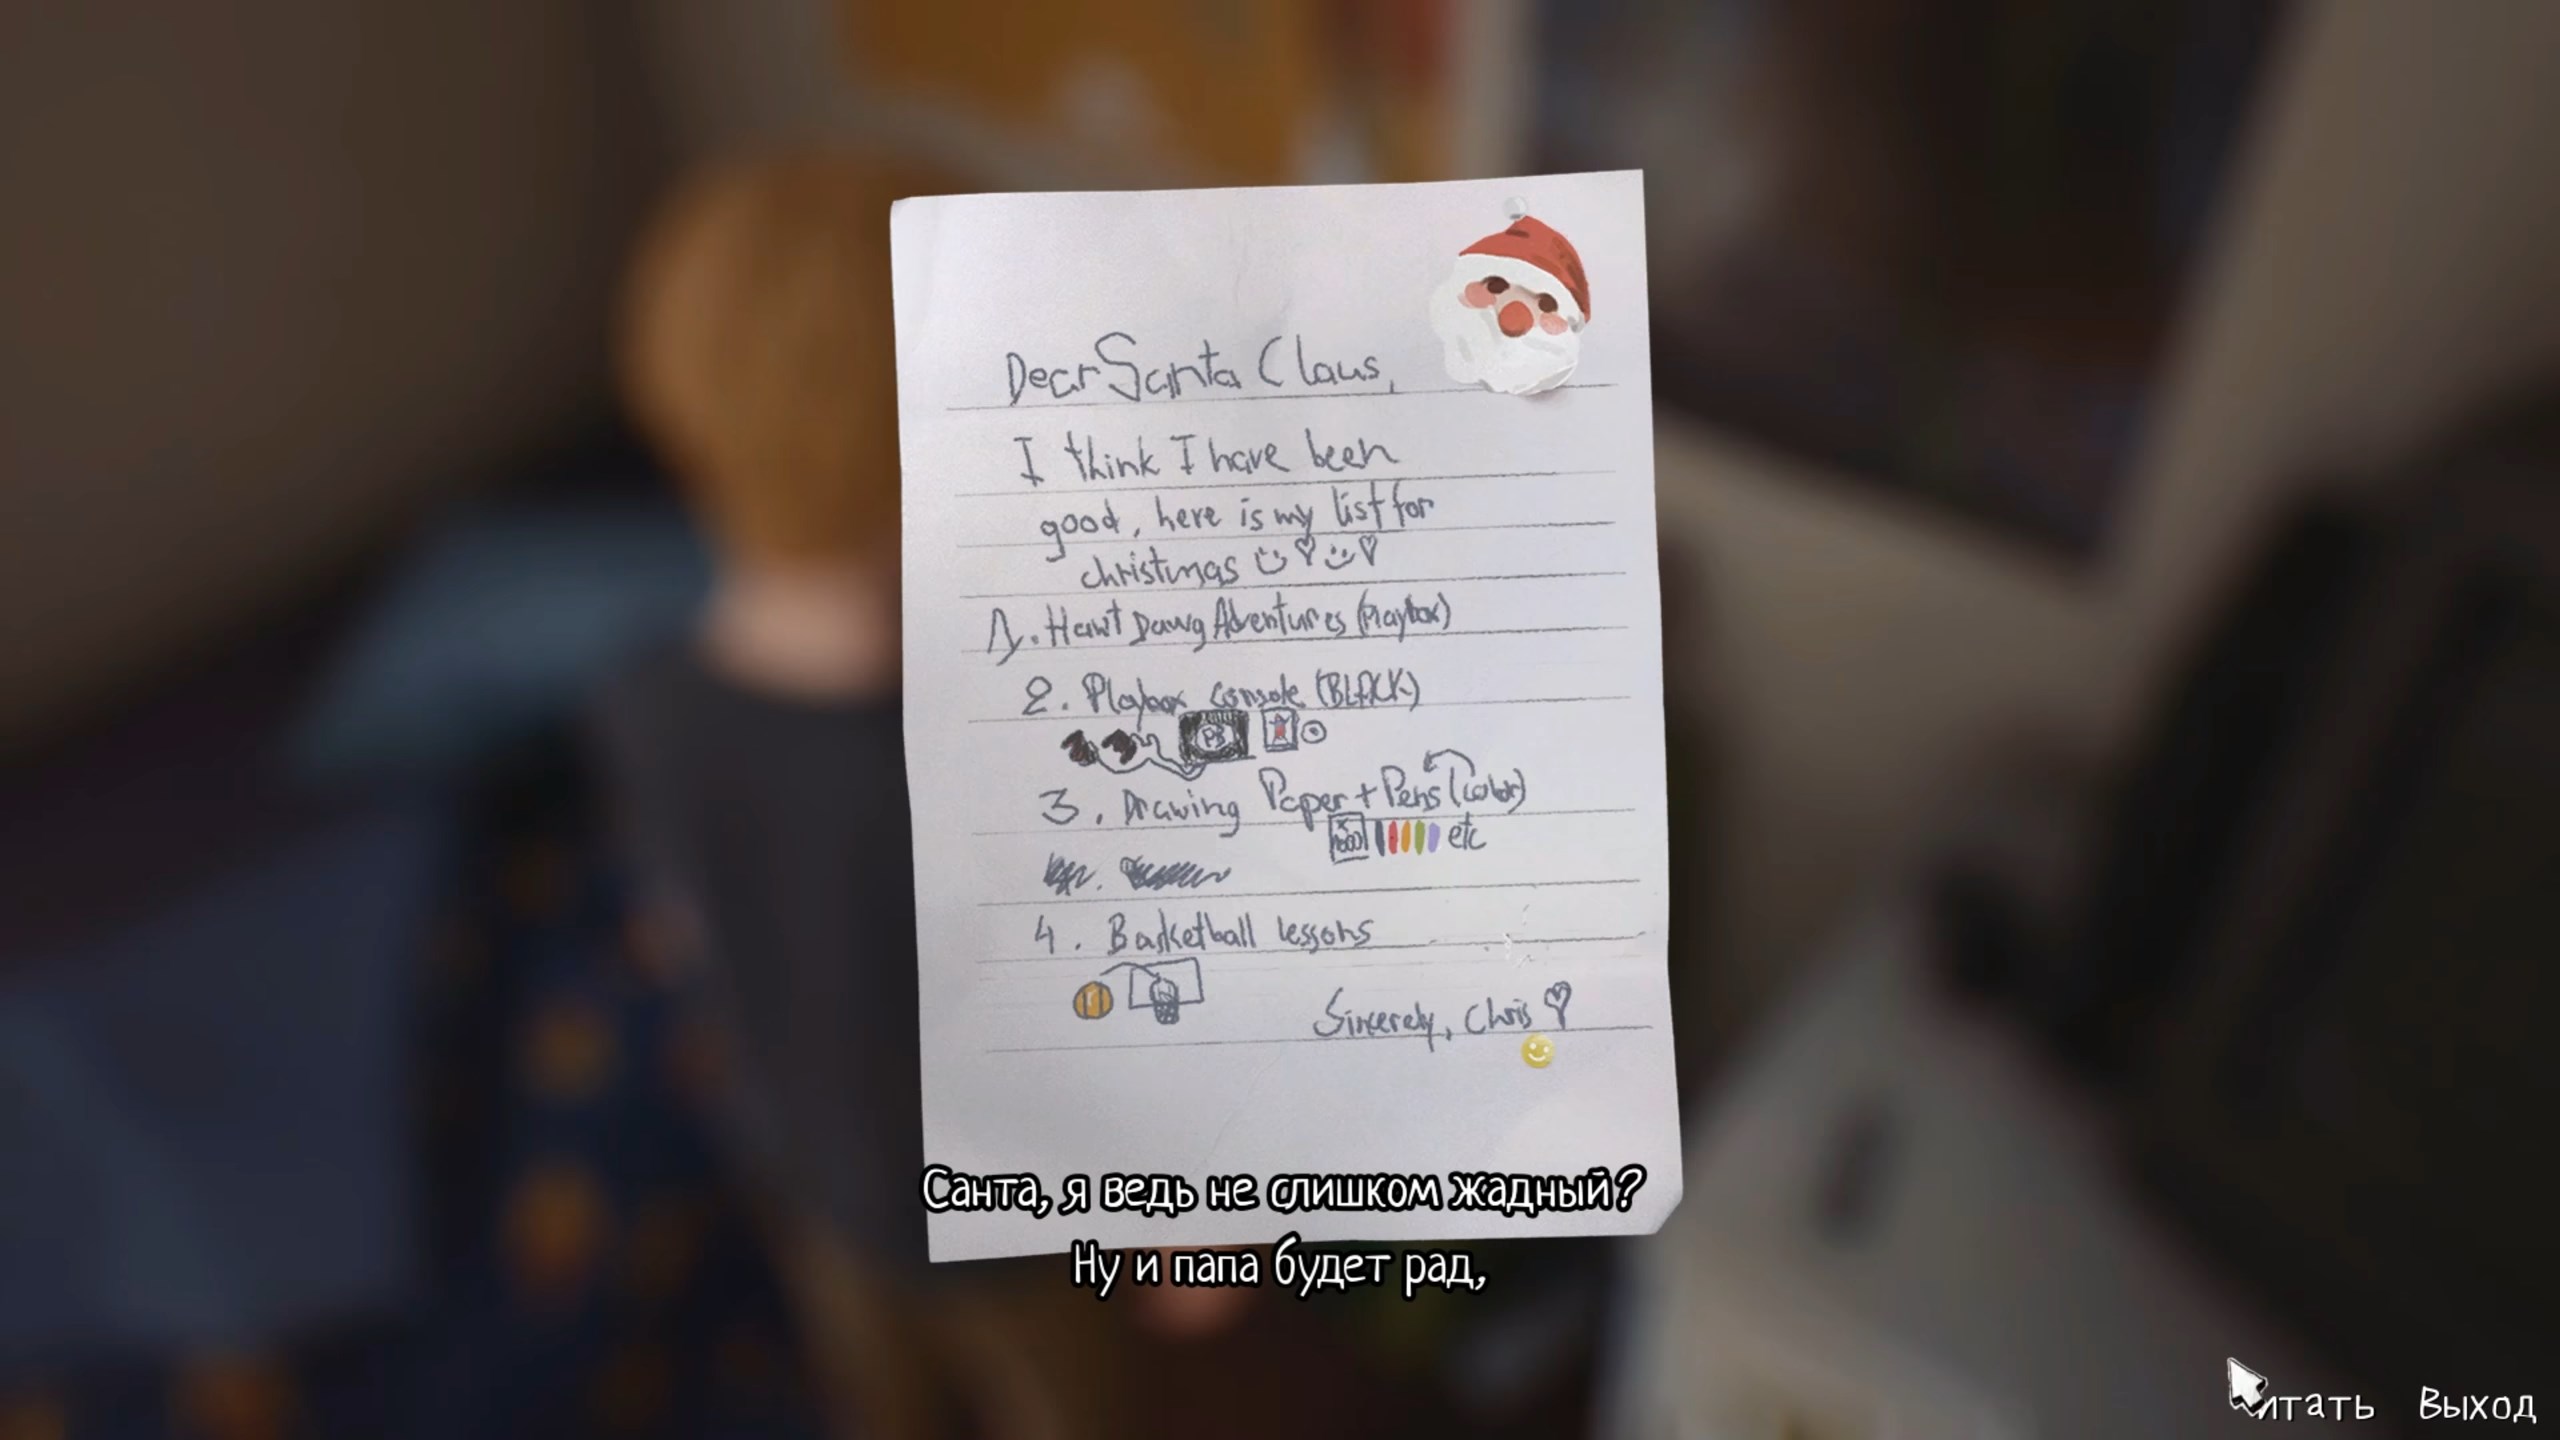 Dear Santa Claus,
I think I have been
good, here is my list for
christmas
1. Hawt Dawg Adventures (Playbox)
2. Playbox console (BLACK)
PB
3. Drawing Paper + Pens (color)
etc
4. Basketball lessons
Sincerely, Chris
Санта, я ведь не слишком жадный?
Ну и папа будет рад,
Выход